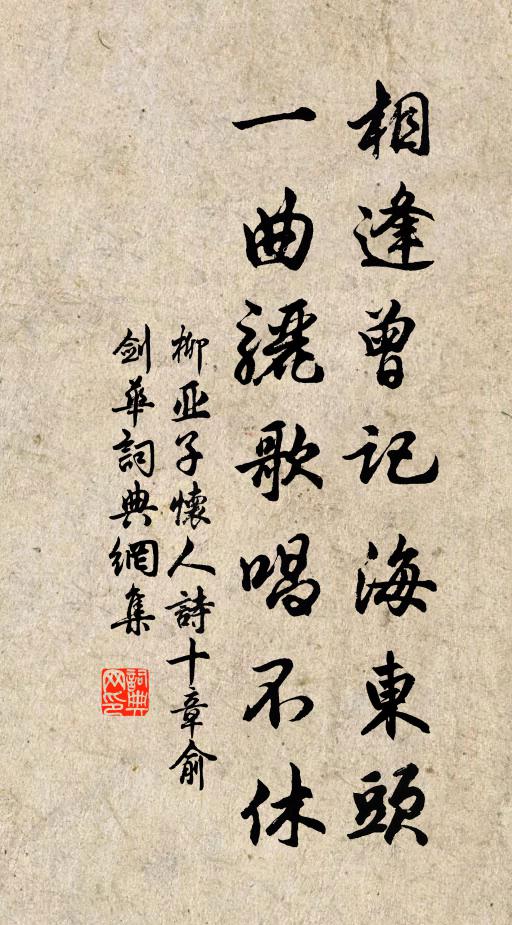 相逢曾記海東頭
一曲驪歌唱不休
柳亚子懷人詩十章俞
劍華詞典網集
詞典网印